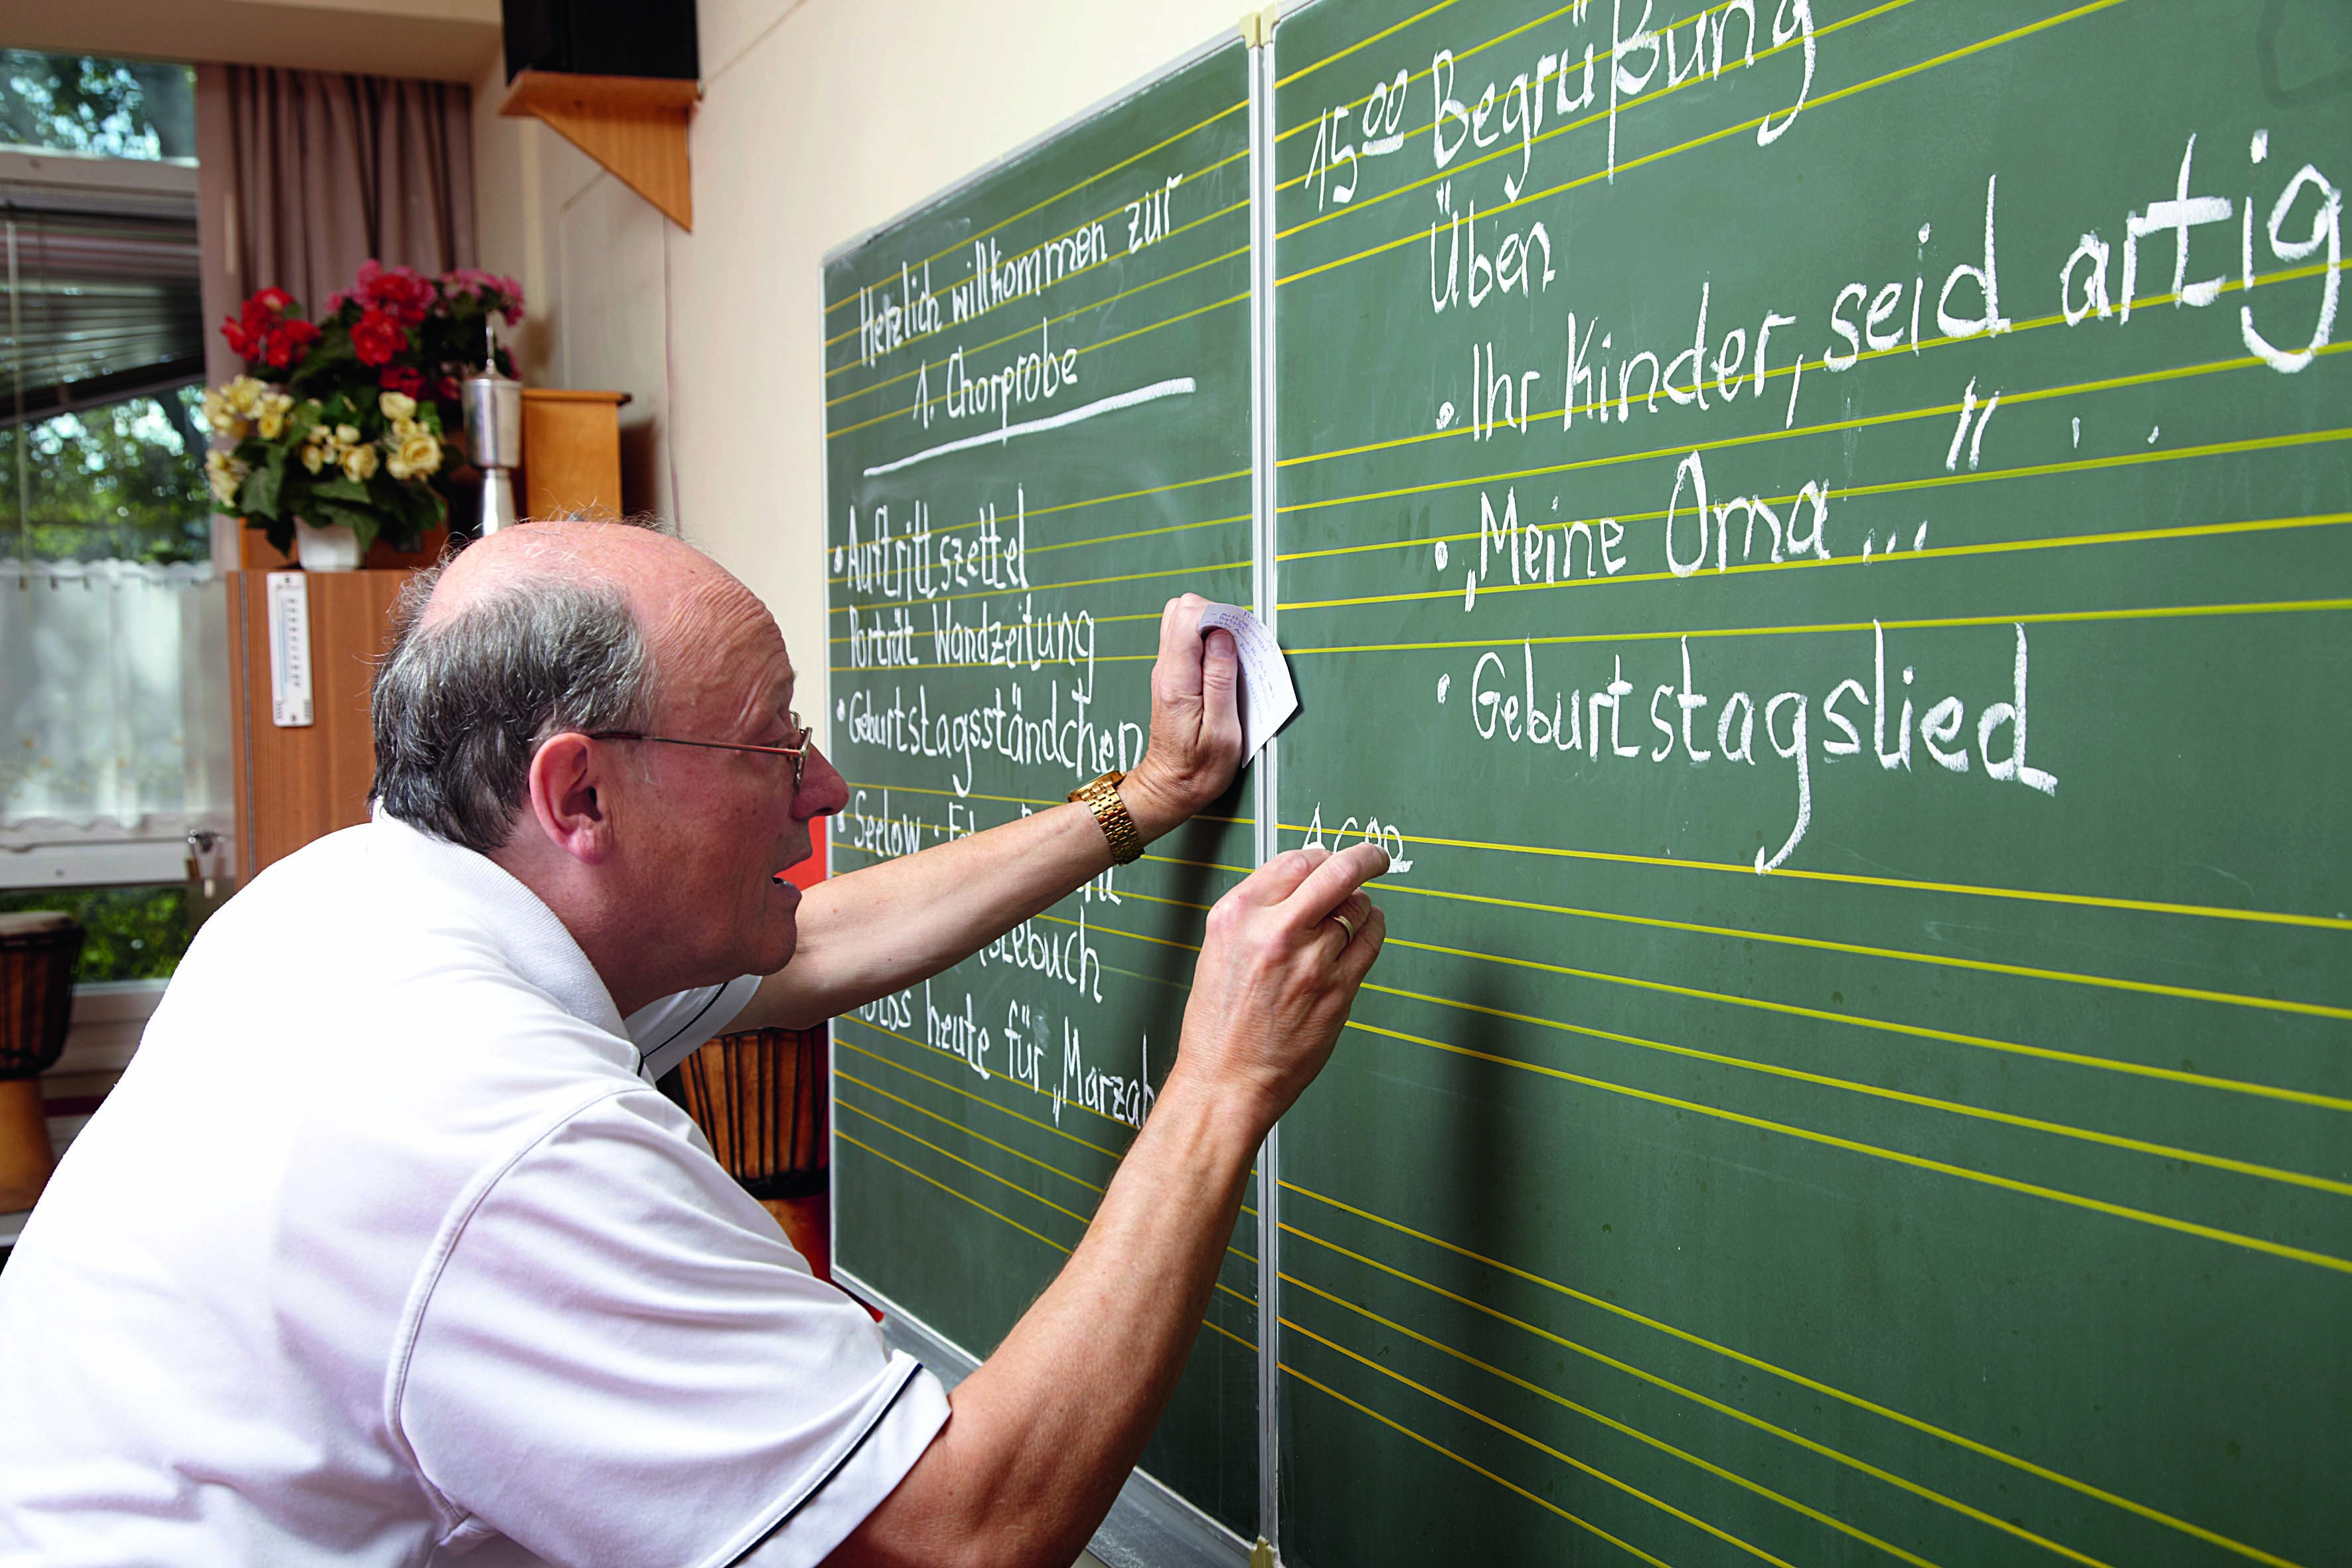 Herzlich willkommen zur
1. Chorprobe
• Auftrittszettel
Porträt Wandzeitung
• Geburtstagsständchen
• Seelow
heute für „Marzah
15 00 Begrüßung
Üben
• Ihr Kinder, seid artig
• „Meine Oma..."
• Geburtstagslied